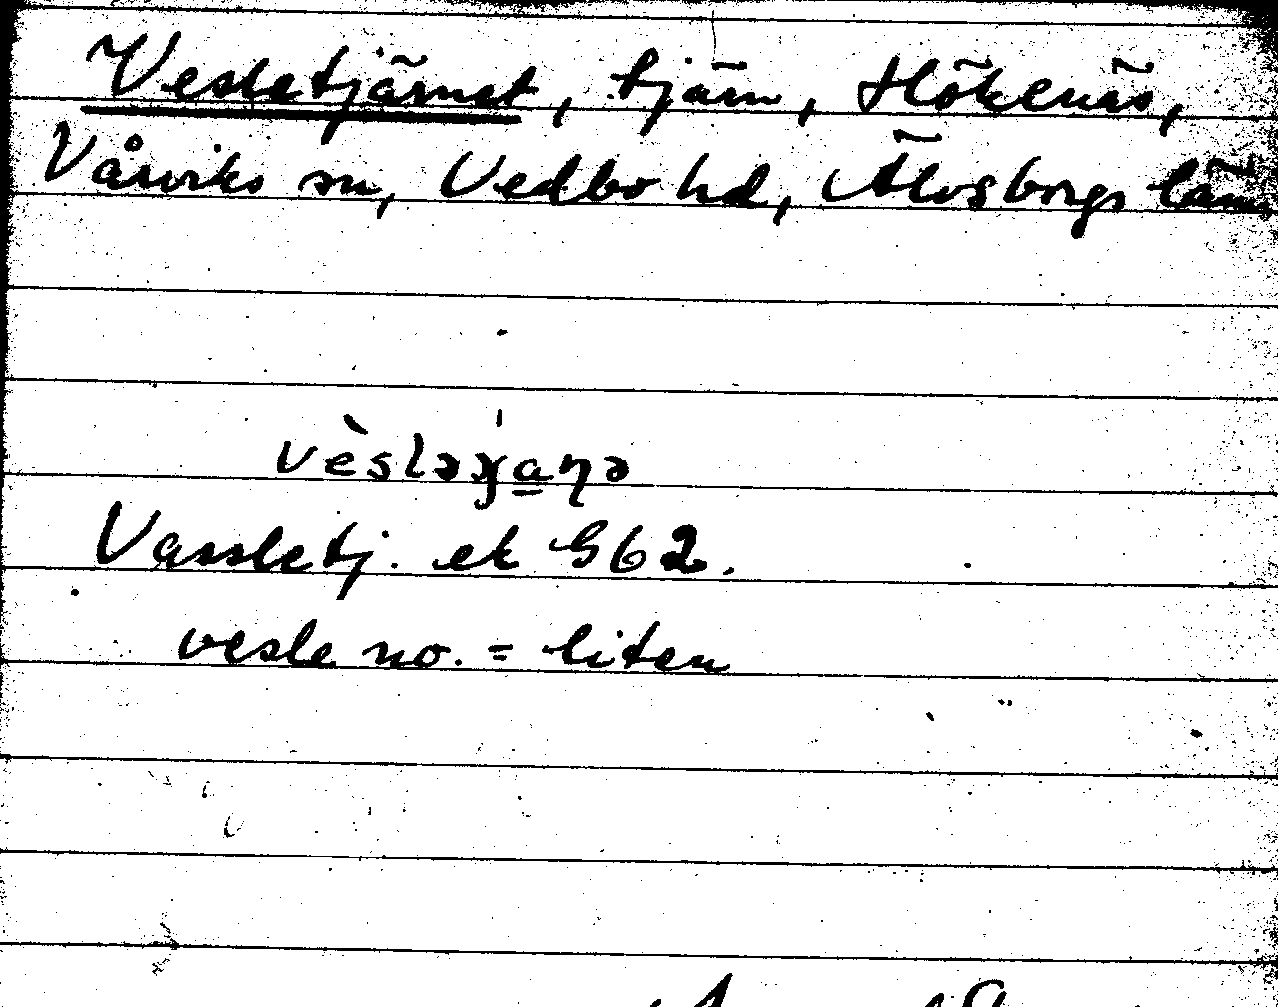 Vesletjärnet, tjärn, Hökenäs,
Vårviks sn, Vedbo hd, Älvsborgs län
vèsləɣa̲ɳə
Vassletj. ek G62.
vesle no. = liten